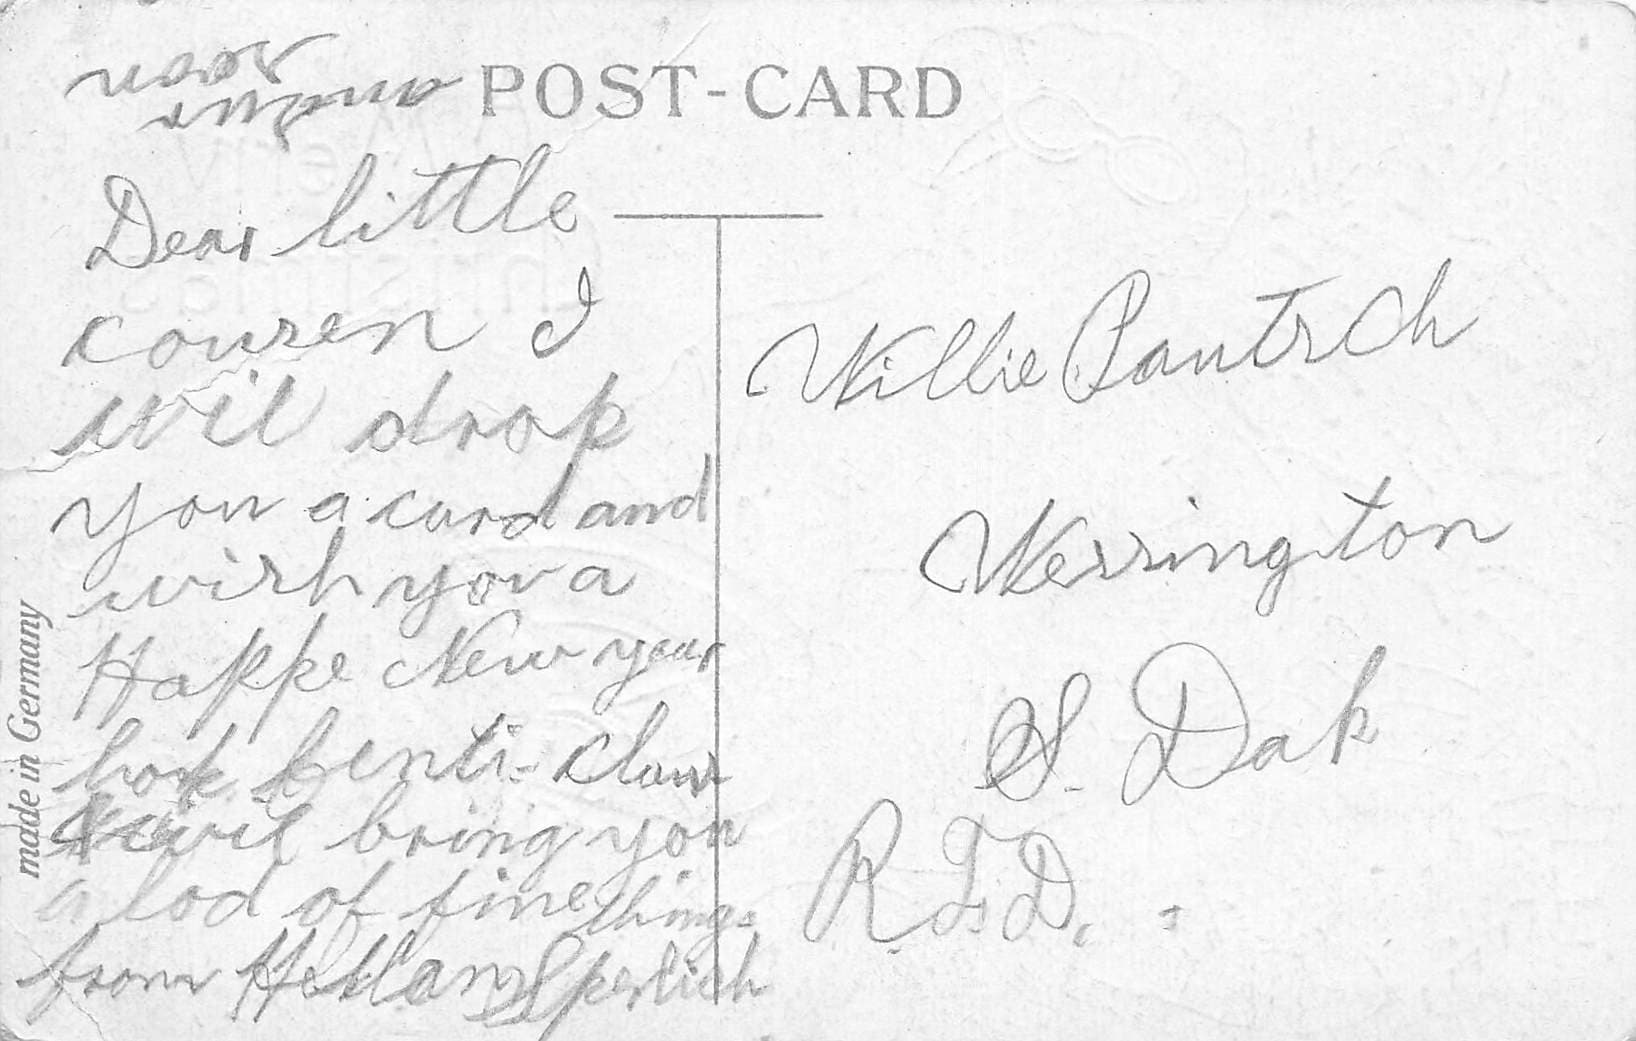 POST-CARD
answer
soon
Dear little
cousen I
wil drop
you a card and
wish you a
Happe New year
hope senti-claus
wil bring you
a lod of fine things
from Sperlich
Willie Pautsch
Werrington
S. Dak
R.F.D.
made in Germany